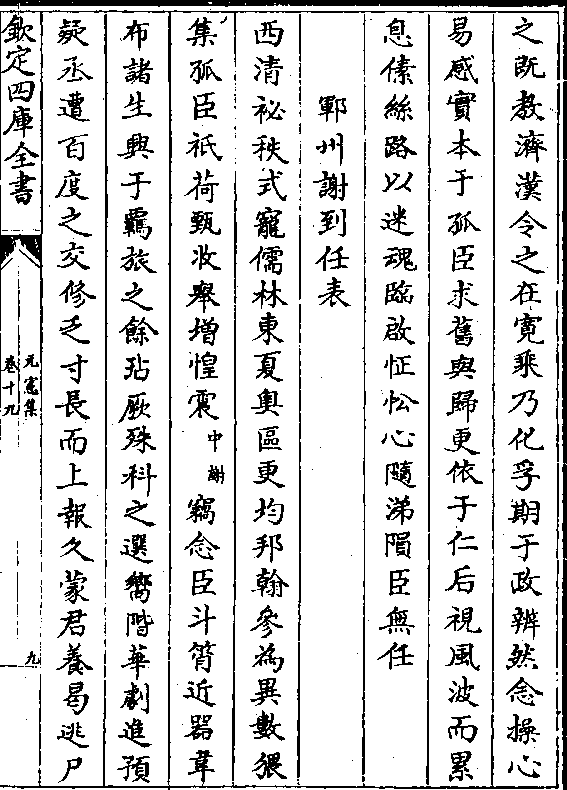 之既教濟漢令之在寛乘乃化孚期于政辨然念操心
易感實本于孤臣求舊與歸更依于仁后視風波而累
息傃絲路以迷魂臨啟怔忪心隨涕隕臣無任
鄆州謝到任表
西清祕秩式寵儒林東夏輿區更均邦翰參為異數猥
集孤臣祇荷甄收舉增惶震中謝竊念臣斗筲近器韋
布諸生興于羈旅之餘玷厥殊科之選嚮階華劇進預
疑丞遭百度之交修乏寸長而上報久蒙君養曷逃尸
欽定四庫全書
元憲集
卷十九
九